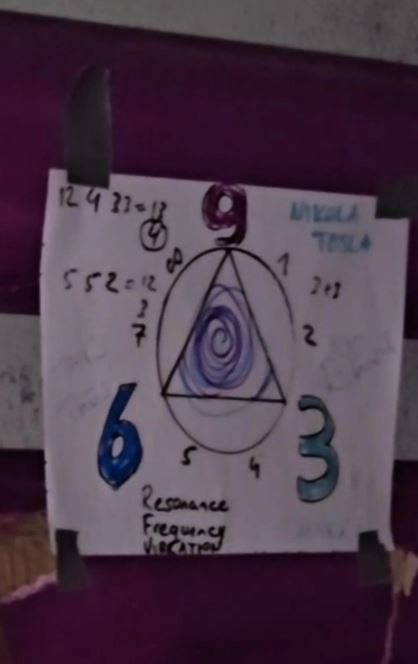 12 4 33 = 13
4
9
NIKOLA
TESLA
8
1
5 5 2 = 12
3
3+3
7
2
6
3
5
4
Resonance
Frequency
VIBRATION